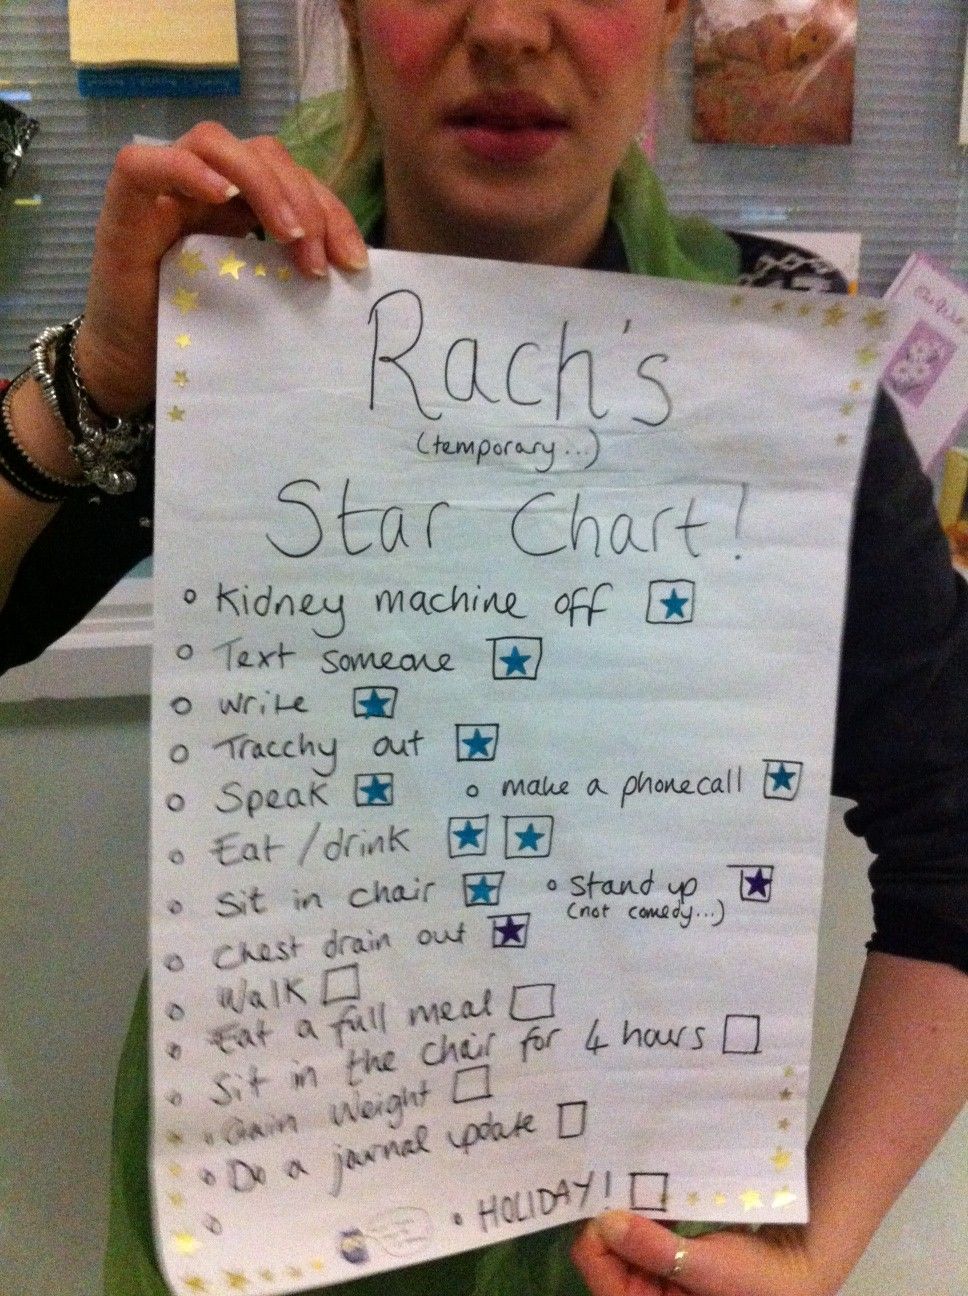 Rach's
(temporary...)
Star Chart!
Kidney machine off
Text someone
Write
Tracchy out
Speak
make a phonecall
Eat/drink
Sit in chair
Stand up
(not comedy...)
Chest drain out
Walk
Eat a full meal
Sit in the chair for 4 hours
Gain weight
Do a journal update
HOLIDAY!